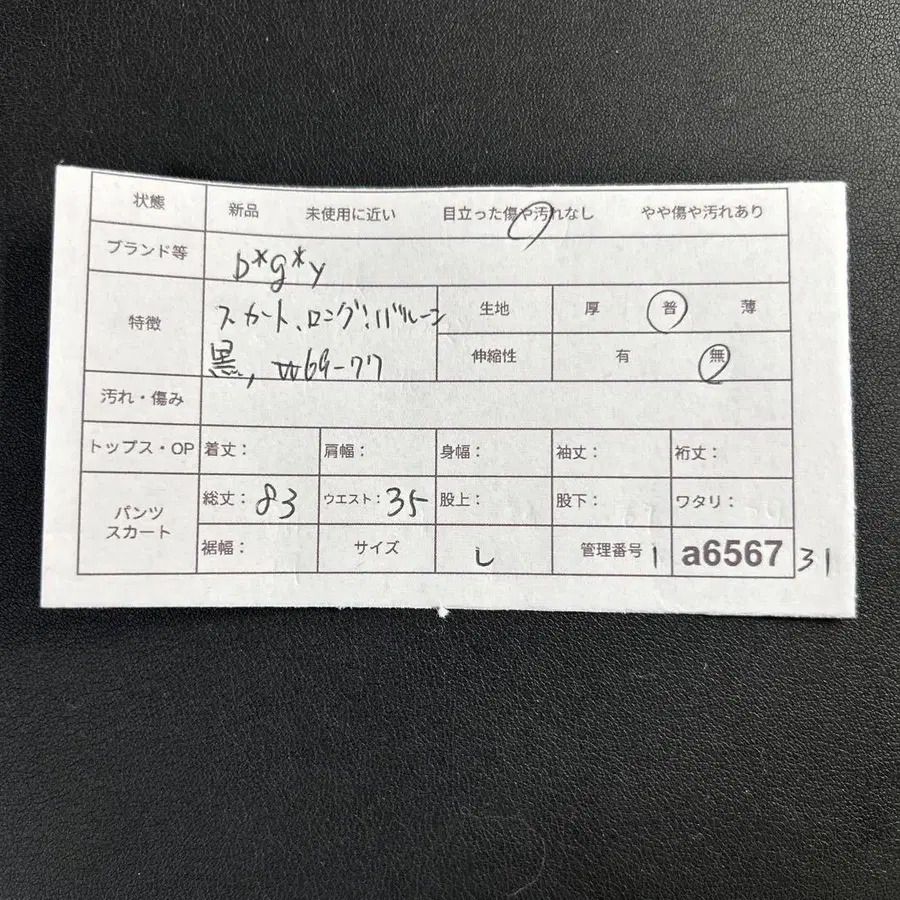 状態 新品 未使用に近い 目立った傷や汚れなし やや傷や汚れあり
ブランド等 b*g*y
特徴 スカート、ロング、バルーン 生地 厚 普 薄
黒、W69-77 伸縮性 有 無
汚れ・傷み
トップス・OP 着丈: 肩幅: 身幅: 袖丈: 裄丈:
パンツ スカート 総丈: 83 ウエスト: 35 股上: 股下: ワタリ:
裾幅: サイズ L 管理番号 1 a6567 31